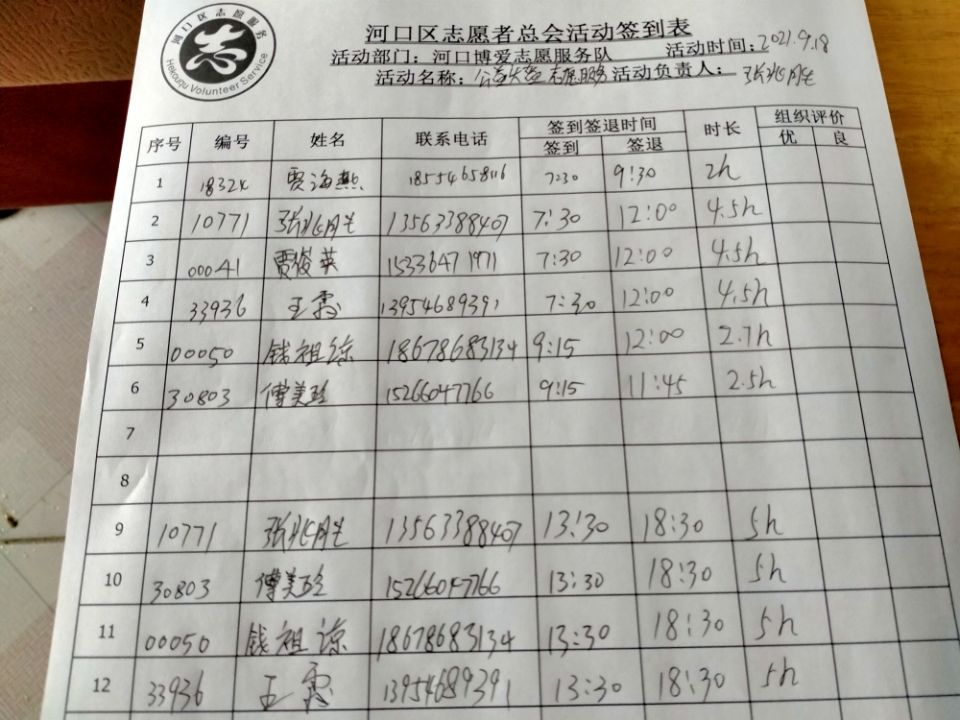 河口区志愿服务
志
Hekouqu Volunteer Service
河口区志愿者总会活动签到表
活动部门：河口博爱志愿服务队 活动时间：2021.9.18
活动名称：公益 志愿服务 活动负责人：张兆胜
序号 编号 姓名 联系电话 签到签退时间 时长 组织评价
签到 签退 优 良
1 18324 贾海燕 18554658116 7:30 9:30 2h
2 10771 张兆胜 13563388407 7:30 12:00 4.5h
3 00041 贾俊英 15336471971 7:30 12:00 4.5h
4 33936 王霞 13954689391 7:30 12:00 4.5h
5 00050 钱祖谅 18678683134 9:15 12:00 2.7h
6 30803 傅美玲 15266047766 9:15 11:45 2.5h
7
8
9 10771 张兆胜 13563388407 13:30 18:30 5h
10 30803 傅美玲 15266047766 13:30 18:30 5h
11 00050 钱祖谅 18678683134 13:30 18:30 5h
12 33936 王霞 13954689391 13:30 18:30 5h